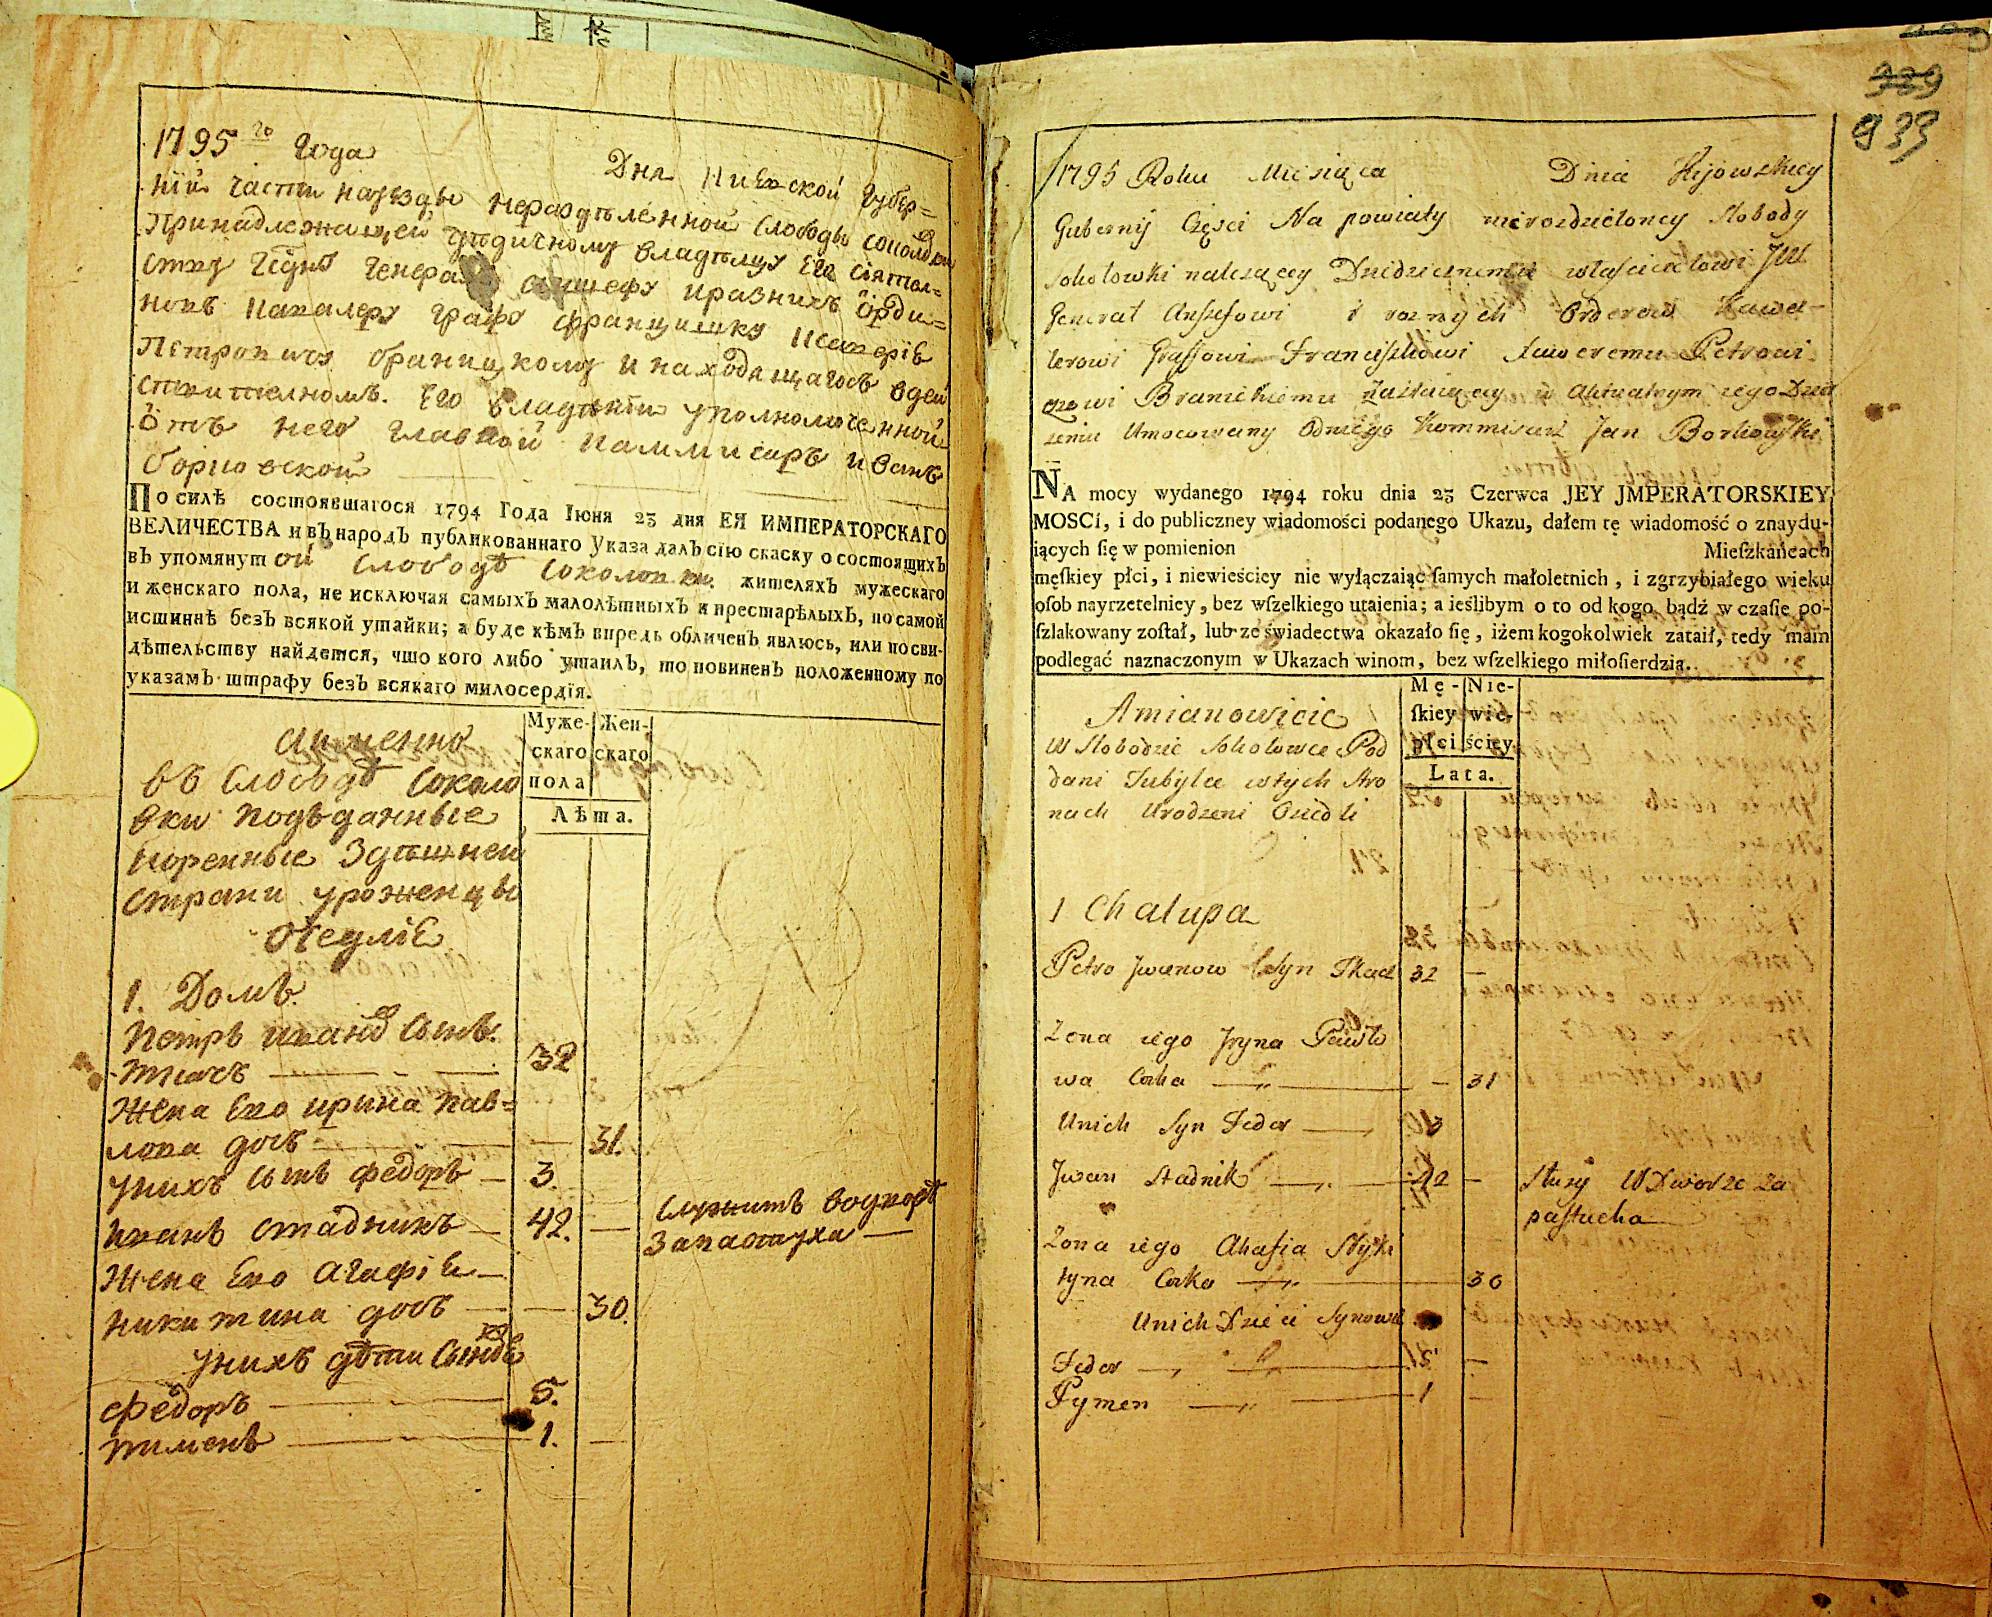 1795 го Года Дня Киевской Губер=
нїи части науезды нераздѣленной слободы соколовки
принадлежащей дѣдичному владѣлцу Его сиятел=
ству Гєдну Генералъ аншефу иразнихъ орди=
новъ кавалеру графу францишку ксаверїю
Петровичу браницкому и находящагосъ вдей
ствителномъ. Его владѣнїи уполномоченной
отъ него главной каммисаръ иванъ
борковской
По силѣ состоявшагося 1794 Года Іюня 23 дня ЕЯ ИМПЕРАТОРСКАГО
ВЕЛИЧЕСТВА и въ народъ публикованнаго Указа далъ сїю скаску о состоящихъ
въ упомянутой Слободѣ Соколовки жителяхъ мужескаго
и женскаго пола, не исключая самыхъ малолѣтныхъ и престарѣлыхъ, по самой
истиннѣ безъ всякой утайки; а буде кѣмъ впредь обличенъ явлюсь, или по сви-
дѣтельству найдется, что кого либо утаилъ, то повиненъ положенному по
указамъ штрафу безъ всякаго милосердїя.
Муже- Жен-
скаго скаго
пола
Лѣта.
Аименно
въ Слободѣ Соколо
вки подъданные
коренные Здѣшней
страни уроженцы
Оседлїе
1. Домъ
Петръ ивановъ Сынъ
ткачъ 32
Жена Его ирина Пав=
лова дочъ 31.
унихъ Сынъ федоръ 3.
иванъ стадникъ 42. Служитъ водворѣ
Запастуха
Жена Его Агафїя
никитина дочъ 30.
унихъ дѣти Сыновя
федоръ 5.
пименъ 1.
939
933
1795 Roku Miesiąca Dnia Kijowskiey
Gubernij Częsci Na powiaty nierozdzieloney Slobody
Sokołowki należącey Dziedzicznemu własciciełowi JW
Generał Anszefowi i roznych Orderow Kawa-
lerowi Graffowi Franciszkowi Xaweremu Petrowi
czowi Branickiemu Zastaiącey w Aktualnym iego Dzier
żeniu Umocowany Odniego Kommisarz Jan Borkowski
NA mocy wydanego 1794 roku dnia 23 Czerwca JEY JMPERATORSKIEY
MOSCI, i do publiczney wiadomości podanego Ukazu, dałem tę wiadomość o znaydu-
iących ſię w pomienion Mieſzkańcach
męſkiey płci, i niewieściey nie wyłączaiąc ſamych małoletnich, i zgrzybiałego wieku
oſob nayrzetelniey, bez wſzelkiego utaienia; a ieślibym o to od kogo bądź w czaſie po-
ſzlakowany zoſtał, lub ze świadectwa okazało ſię, iżem kogokolwiek zataił, tedy mam
podlegać naznaczonym w Ukazach winom, bez wſzelkiego miłoſierdzia.
Mę- Nie-
ſkiey wie-
płci ściey
Lata.
Amianowicie
W Slobodzie Sokołowce Pod
dani Tubylce wtych Stro
nach Urodzeni Osiedli
1 Chałupa
Petro Jwanow Syn Tkacz 32 —
Zona iego Jryna Pawło
wa Corka — 31
Unich Syn Fedor 3
Jwan Stadnik 42 — Służy W Dworze za
pastucha
Zona iego Ahafia Niki
tyna Corka 30
Unich Dzieci Synowie
Fedor 5 —
Pymen 1 —